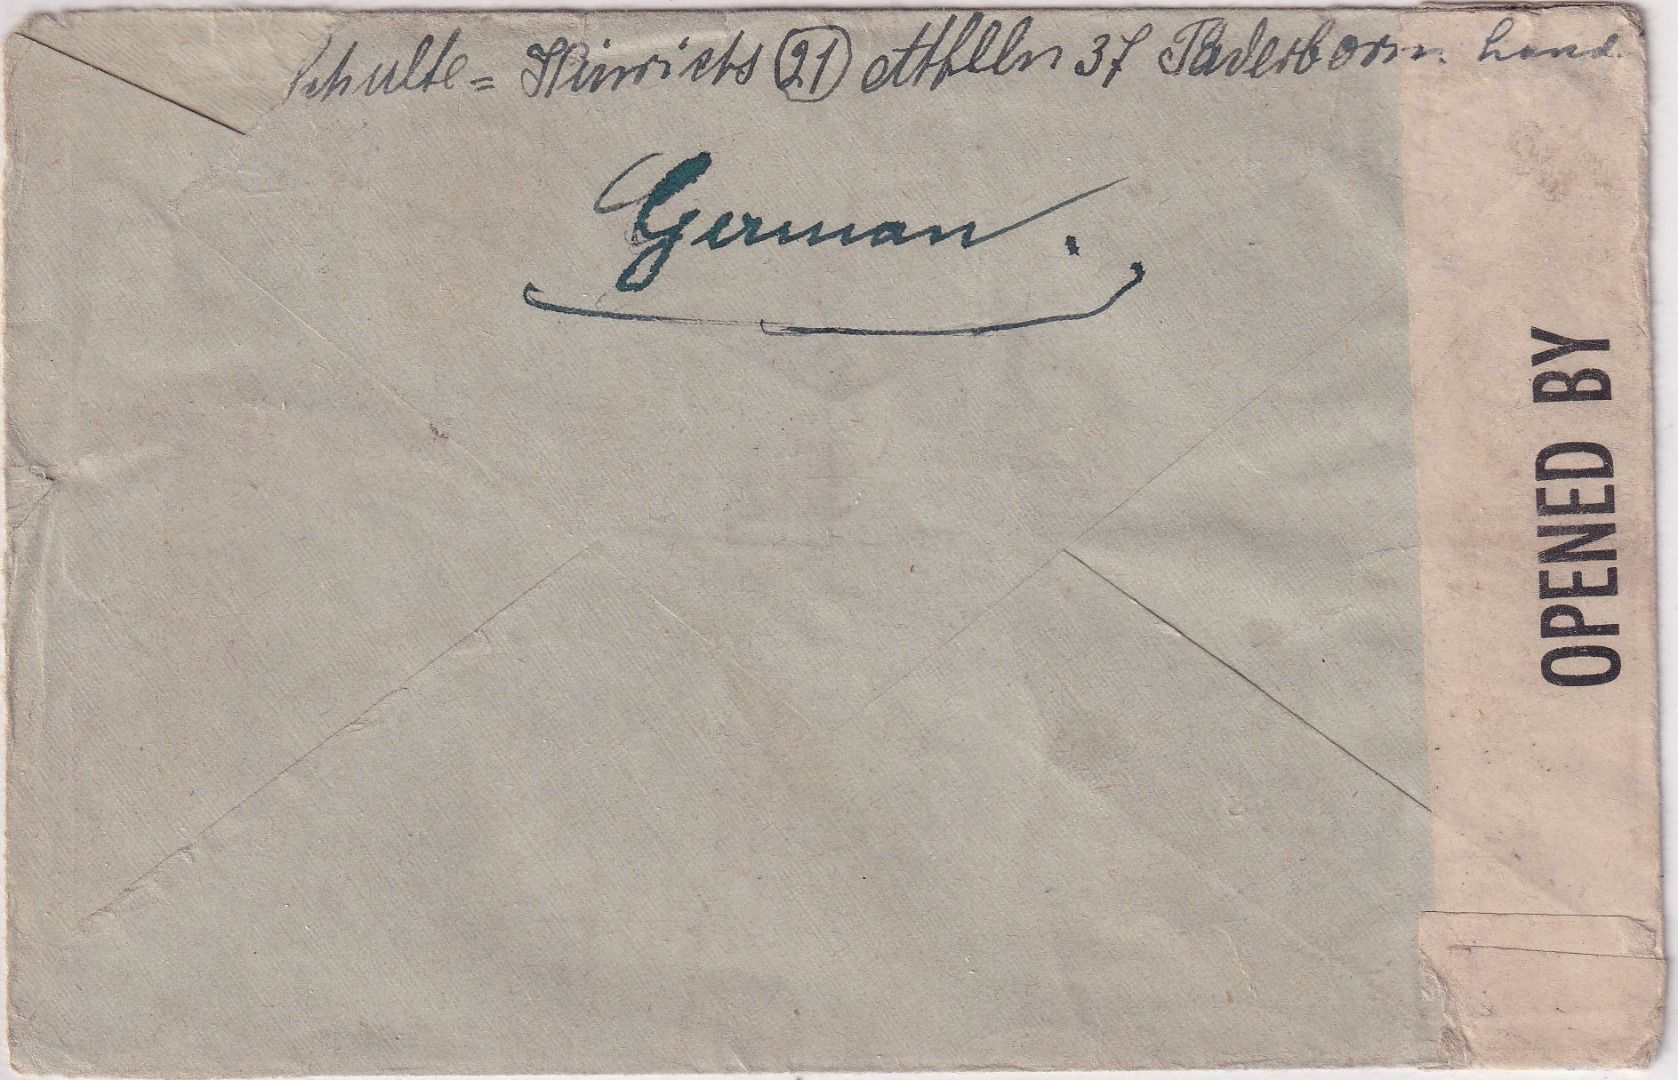 Schulte = Hinrichs (21) Atteln 37 Paderborn. Land.
German.
OPENED BY